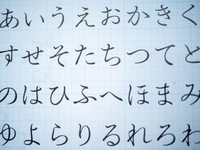 あいうえおかきく
すせそたちつてと
のはひふへほまみ
ゆよらりるれろわ